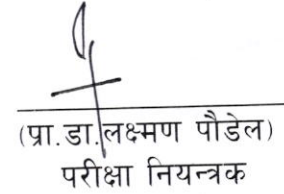 (प्रा.डा.लक्ष्मण पौडेल)
परीक्षा नियन्त्रक